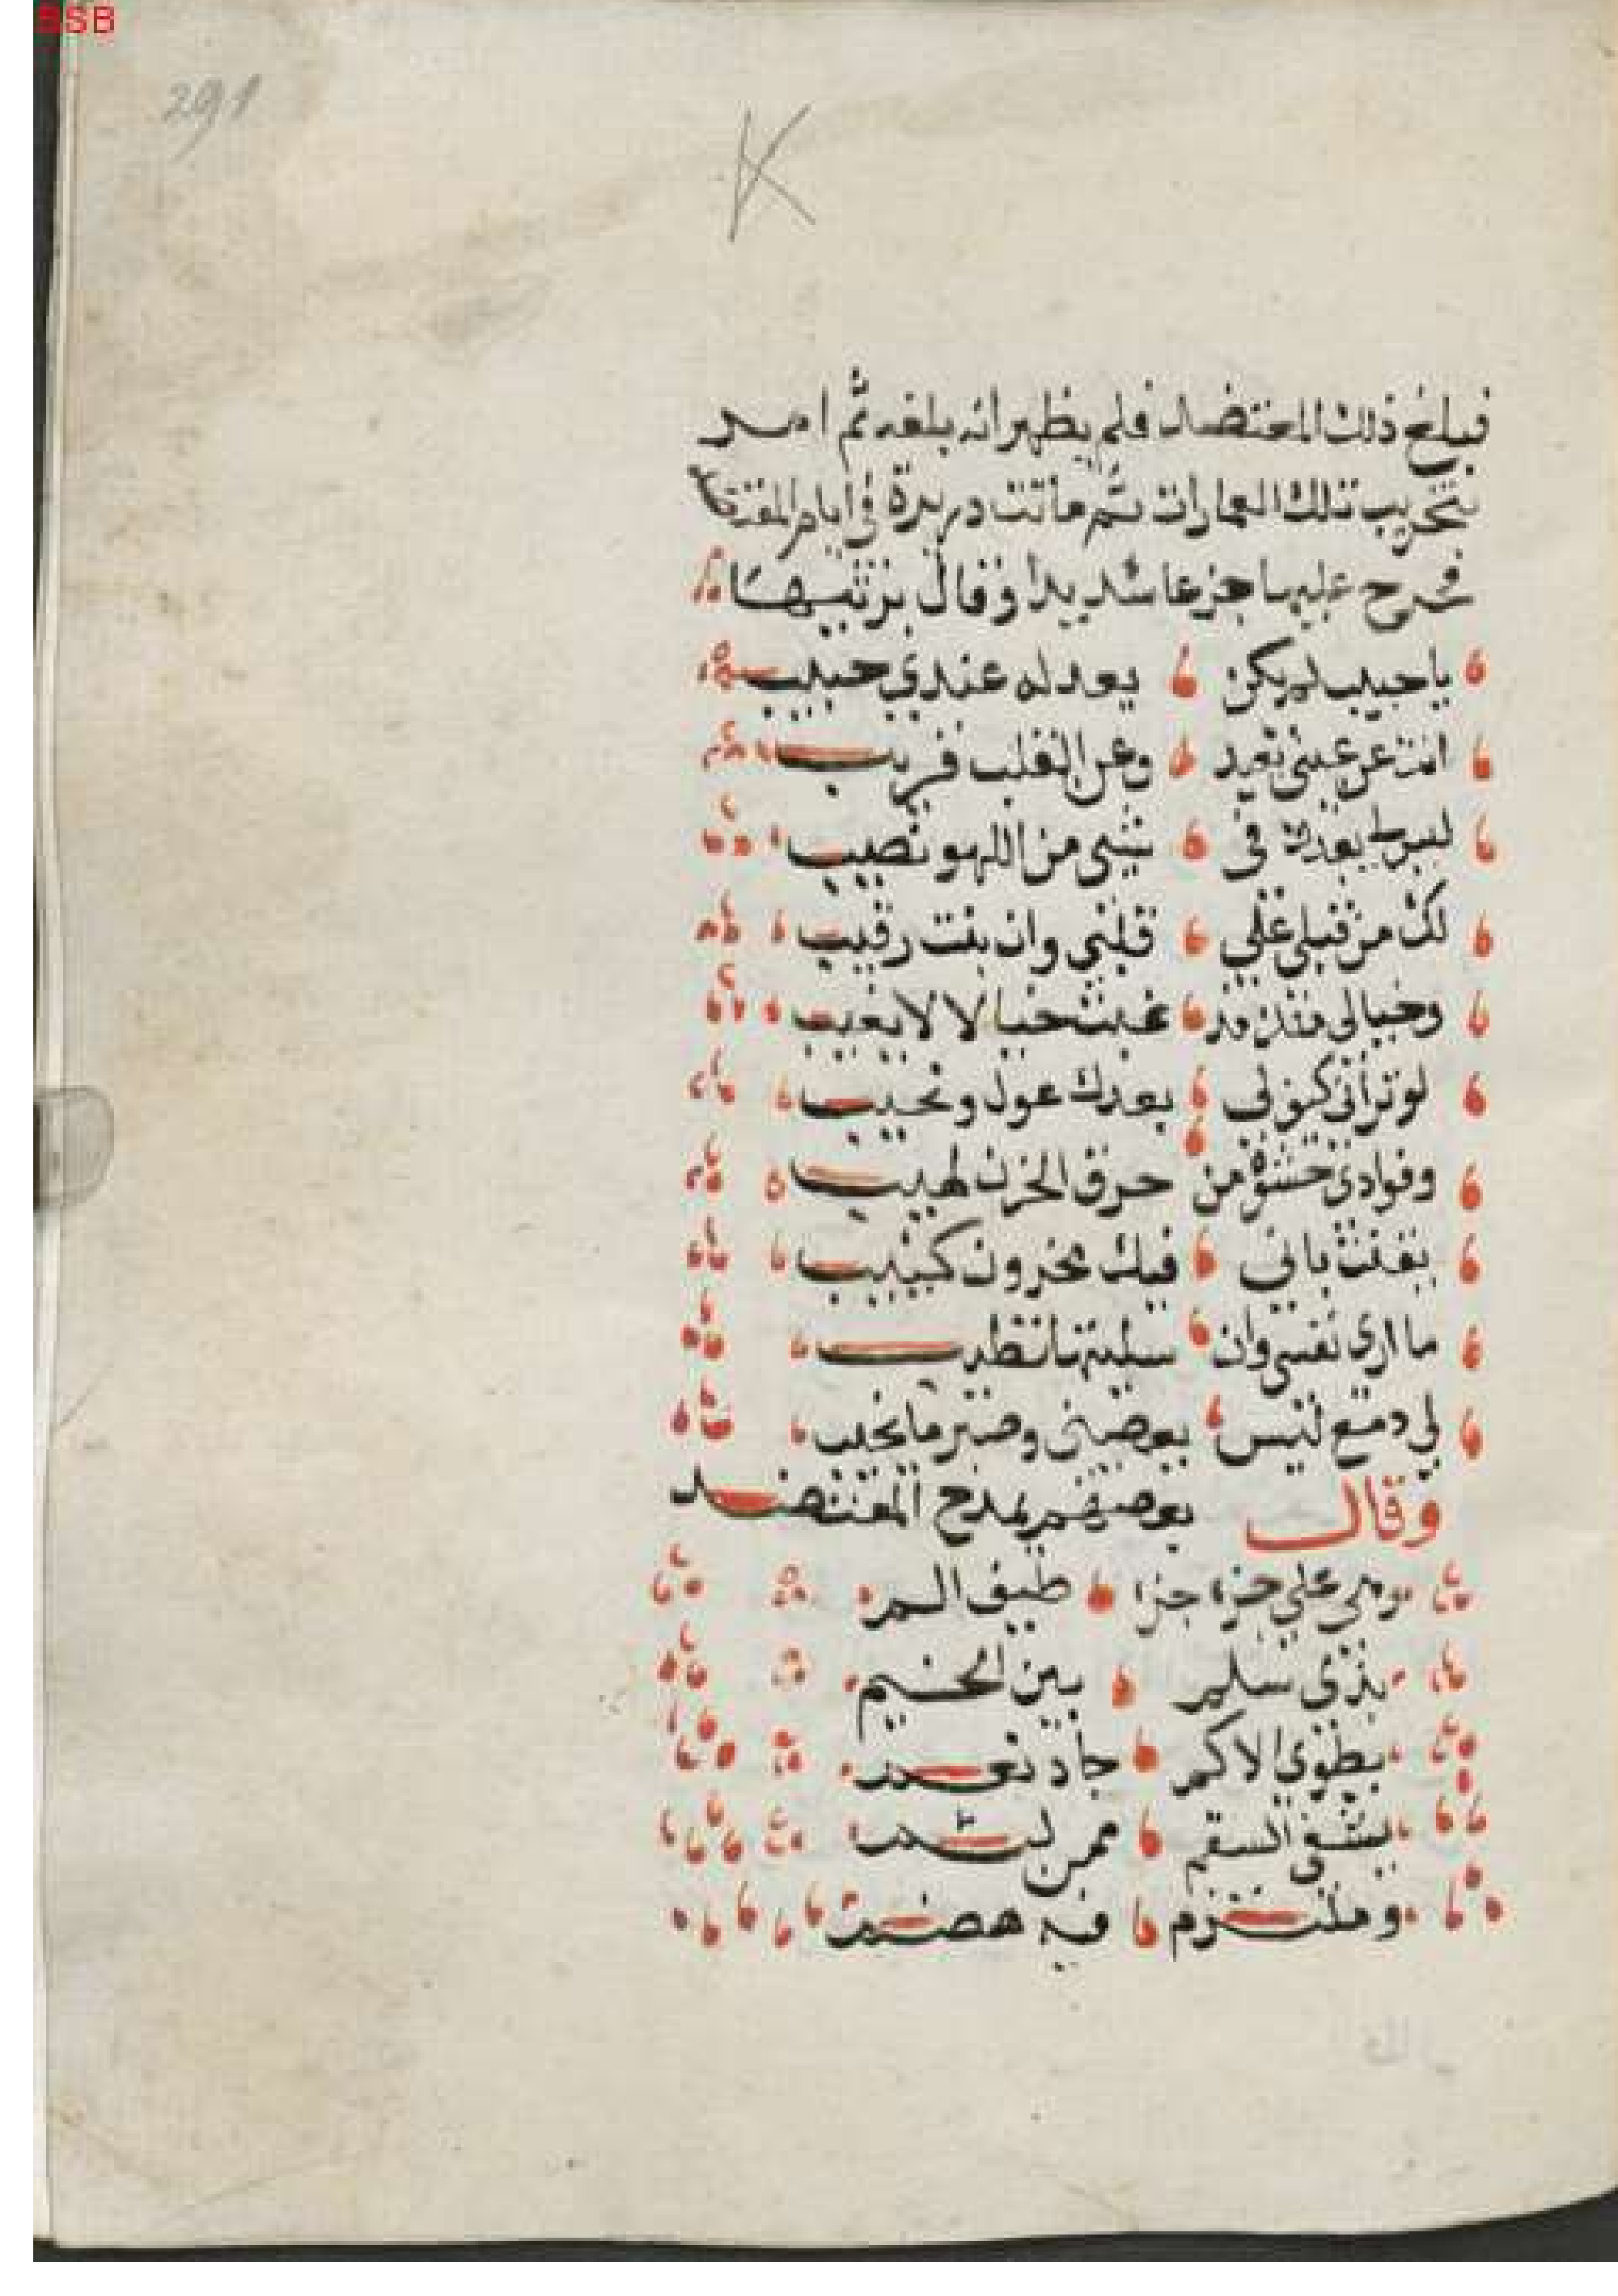 BSB
291
K
فبلغ ذلك المعتضد فلم يظهر انه بلغه ثم امر
بتخريب تلك العمارات ثم ماتت دريرة في ايام المعتضد
فجزع عليها جزعا شديدا وقال يرثيها
يا حبيب لم يكن يعدله عندي حبيب
انت عن عيني بعيد وعن القلب قريب
ليس لي بعدك في شيء من اللهو نصيب
لك من قلبي علي قلبي وان بنت رقيب
وخيالي منك مذ غبت خيالا لا يغيب
لو تراني كيف لي بعدك عول ونحيب
وفوادي حشوه من حرق الحزن لهيب
بقنت باني فيك محزون كييب
ما ارى نفسي وان سليتها تطيب
لي دمع ليس يعصيني وصبر ما يجيب
وقال بعضهم يمدح المعتضد
طيف الم
بذي سلم بين الخيم
يطوي الاكم جاد نعم
يشفي السقم ممن لثم
وملتزم فيه هضم